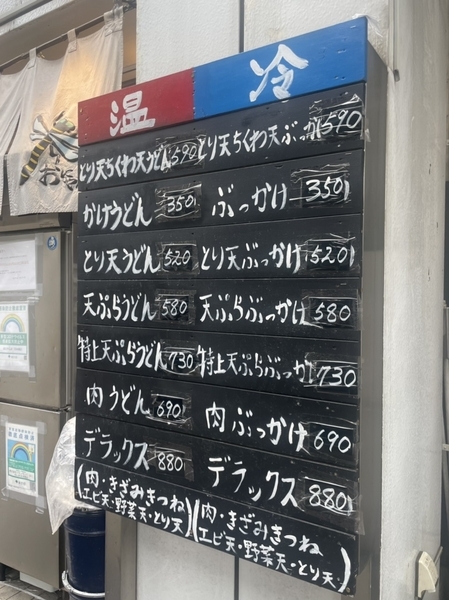 温 冷
とり天ちくわ天うどん 590 とり天ちくわ天ぶっかけ 590
かけうどん 350 ぶっかけ 350
とり天うどん 520 とり天ぶっかけ 520
天ぷらうどん 580 天ぷらぶっかけ 580
特上天ぷらうどん 730 特上天ぷらぶっかけ 730
肉うどん 690 肉ぶっかけ 690
デラックス 880 デラックス 880
(肉・きざみきつね (肉・きざみきつね
エビ天・野菜天・とり天) エビ天・野菜天・とり天)